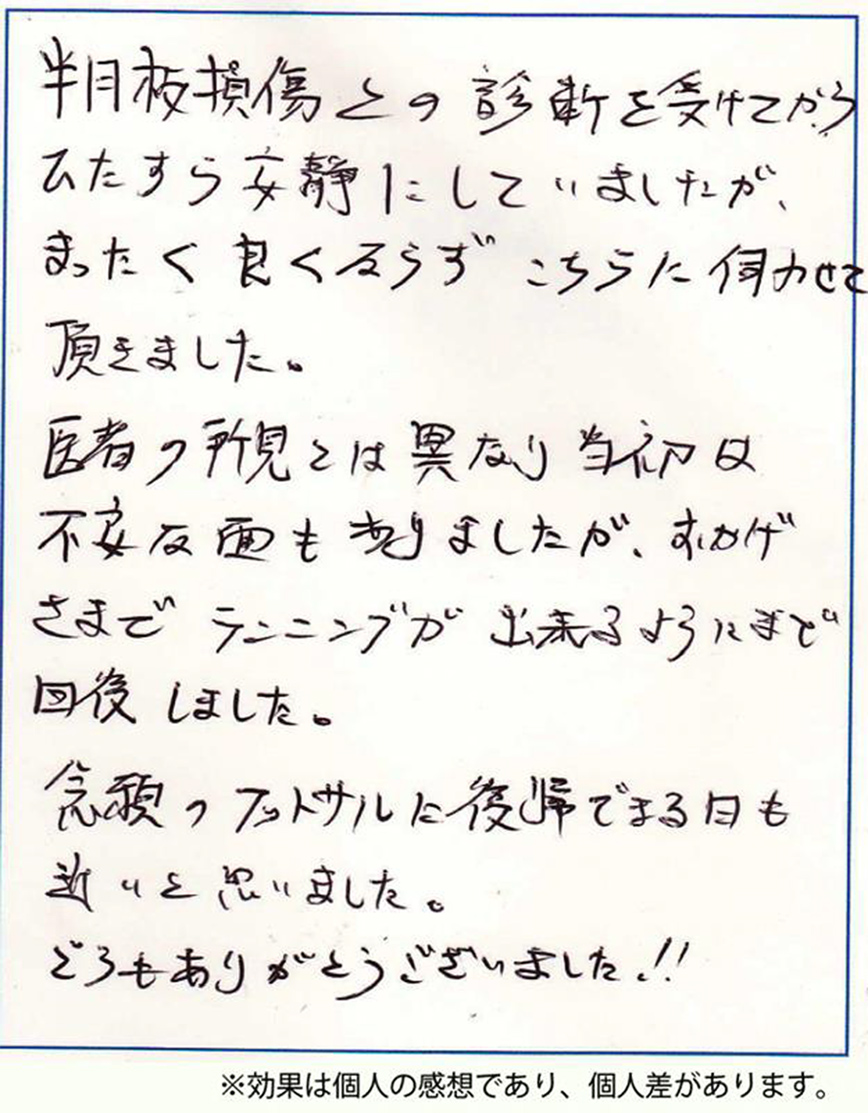 半月板損傷との診断を受けてから
ひたすら安静にしていましたが、
まったく良くならず こちらに伺わせて
頂きました。
医者の所見とは異なり当初は
不安な面も ありましたが、おかげ
さまで ランニングが 出来るようにまで
回復しました。
念願のフットサルに復帰できる日も
近いと思いました。
どうもありがとうございました!!
※効果は個人の感想であり、個人差があります。